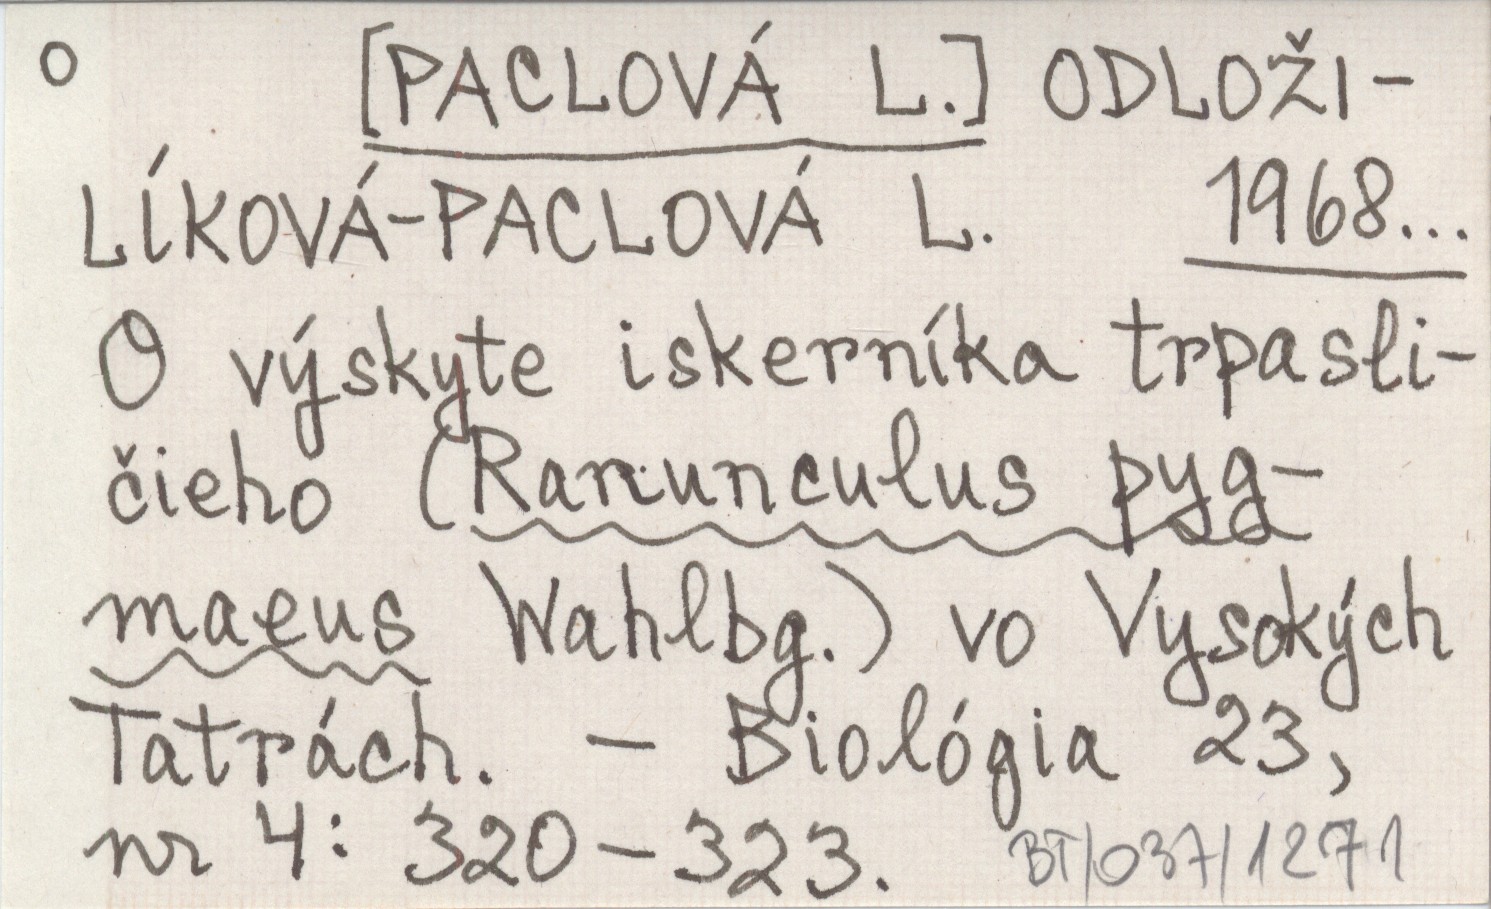 o [PACLOVÁ L.] ODLOŽI-
LÍKOVÁ-PACLOVÁ L. 1968...
O výskyte iskerníka trpasli-
čieho (Ranunculus pyg-
maeus Wahlbg.) vo Vysokých
Tatrách. – Biológia 23,
nr 4: 320–323. BT/037/1271